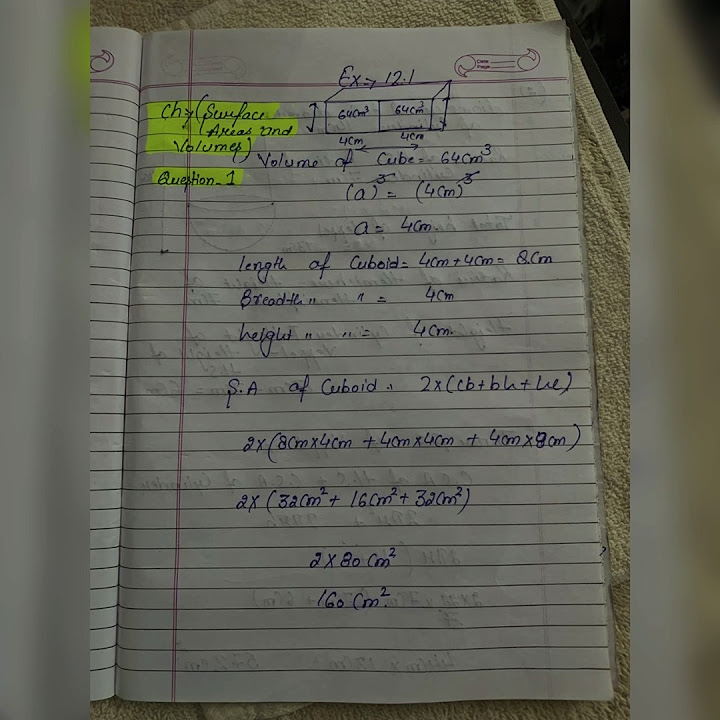 Ex→ 12.1
Ch→ (Surface Areas and Volumes)
64cm³ 64cm³
4cm 4cm
Volume of Cube = 64cm³
Question-1
(a)³ = (4cm)³
a = 4cm.
length of Cuboid = 4cm+4cm = 8cm
Breadth " " = 4cm
height " " = 4cm.
S.A of Cuboid = 2×(lb+bh+hl)
2×(8cm×4cm + 4cm×4cm + 4cm×8cm)
2×(32cm² + 16cm² + 32cm²)
2×80cm²
160cm².